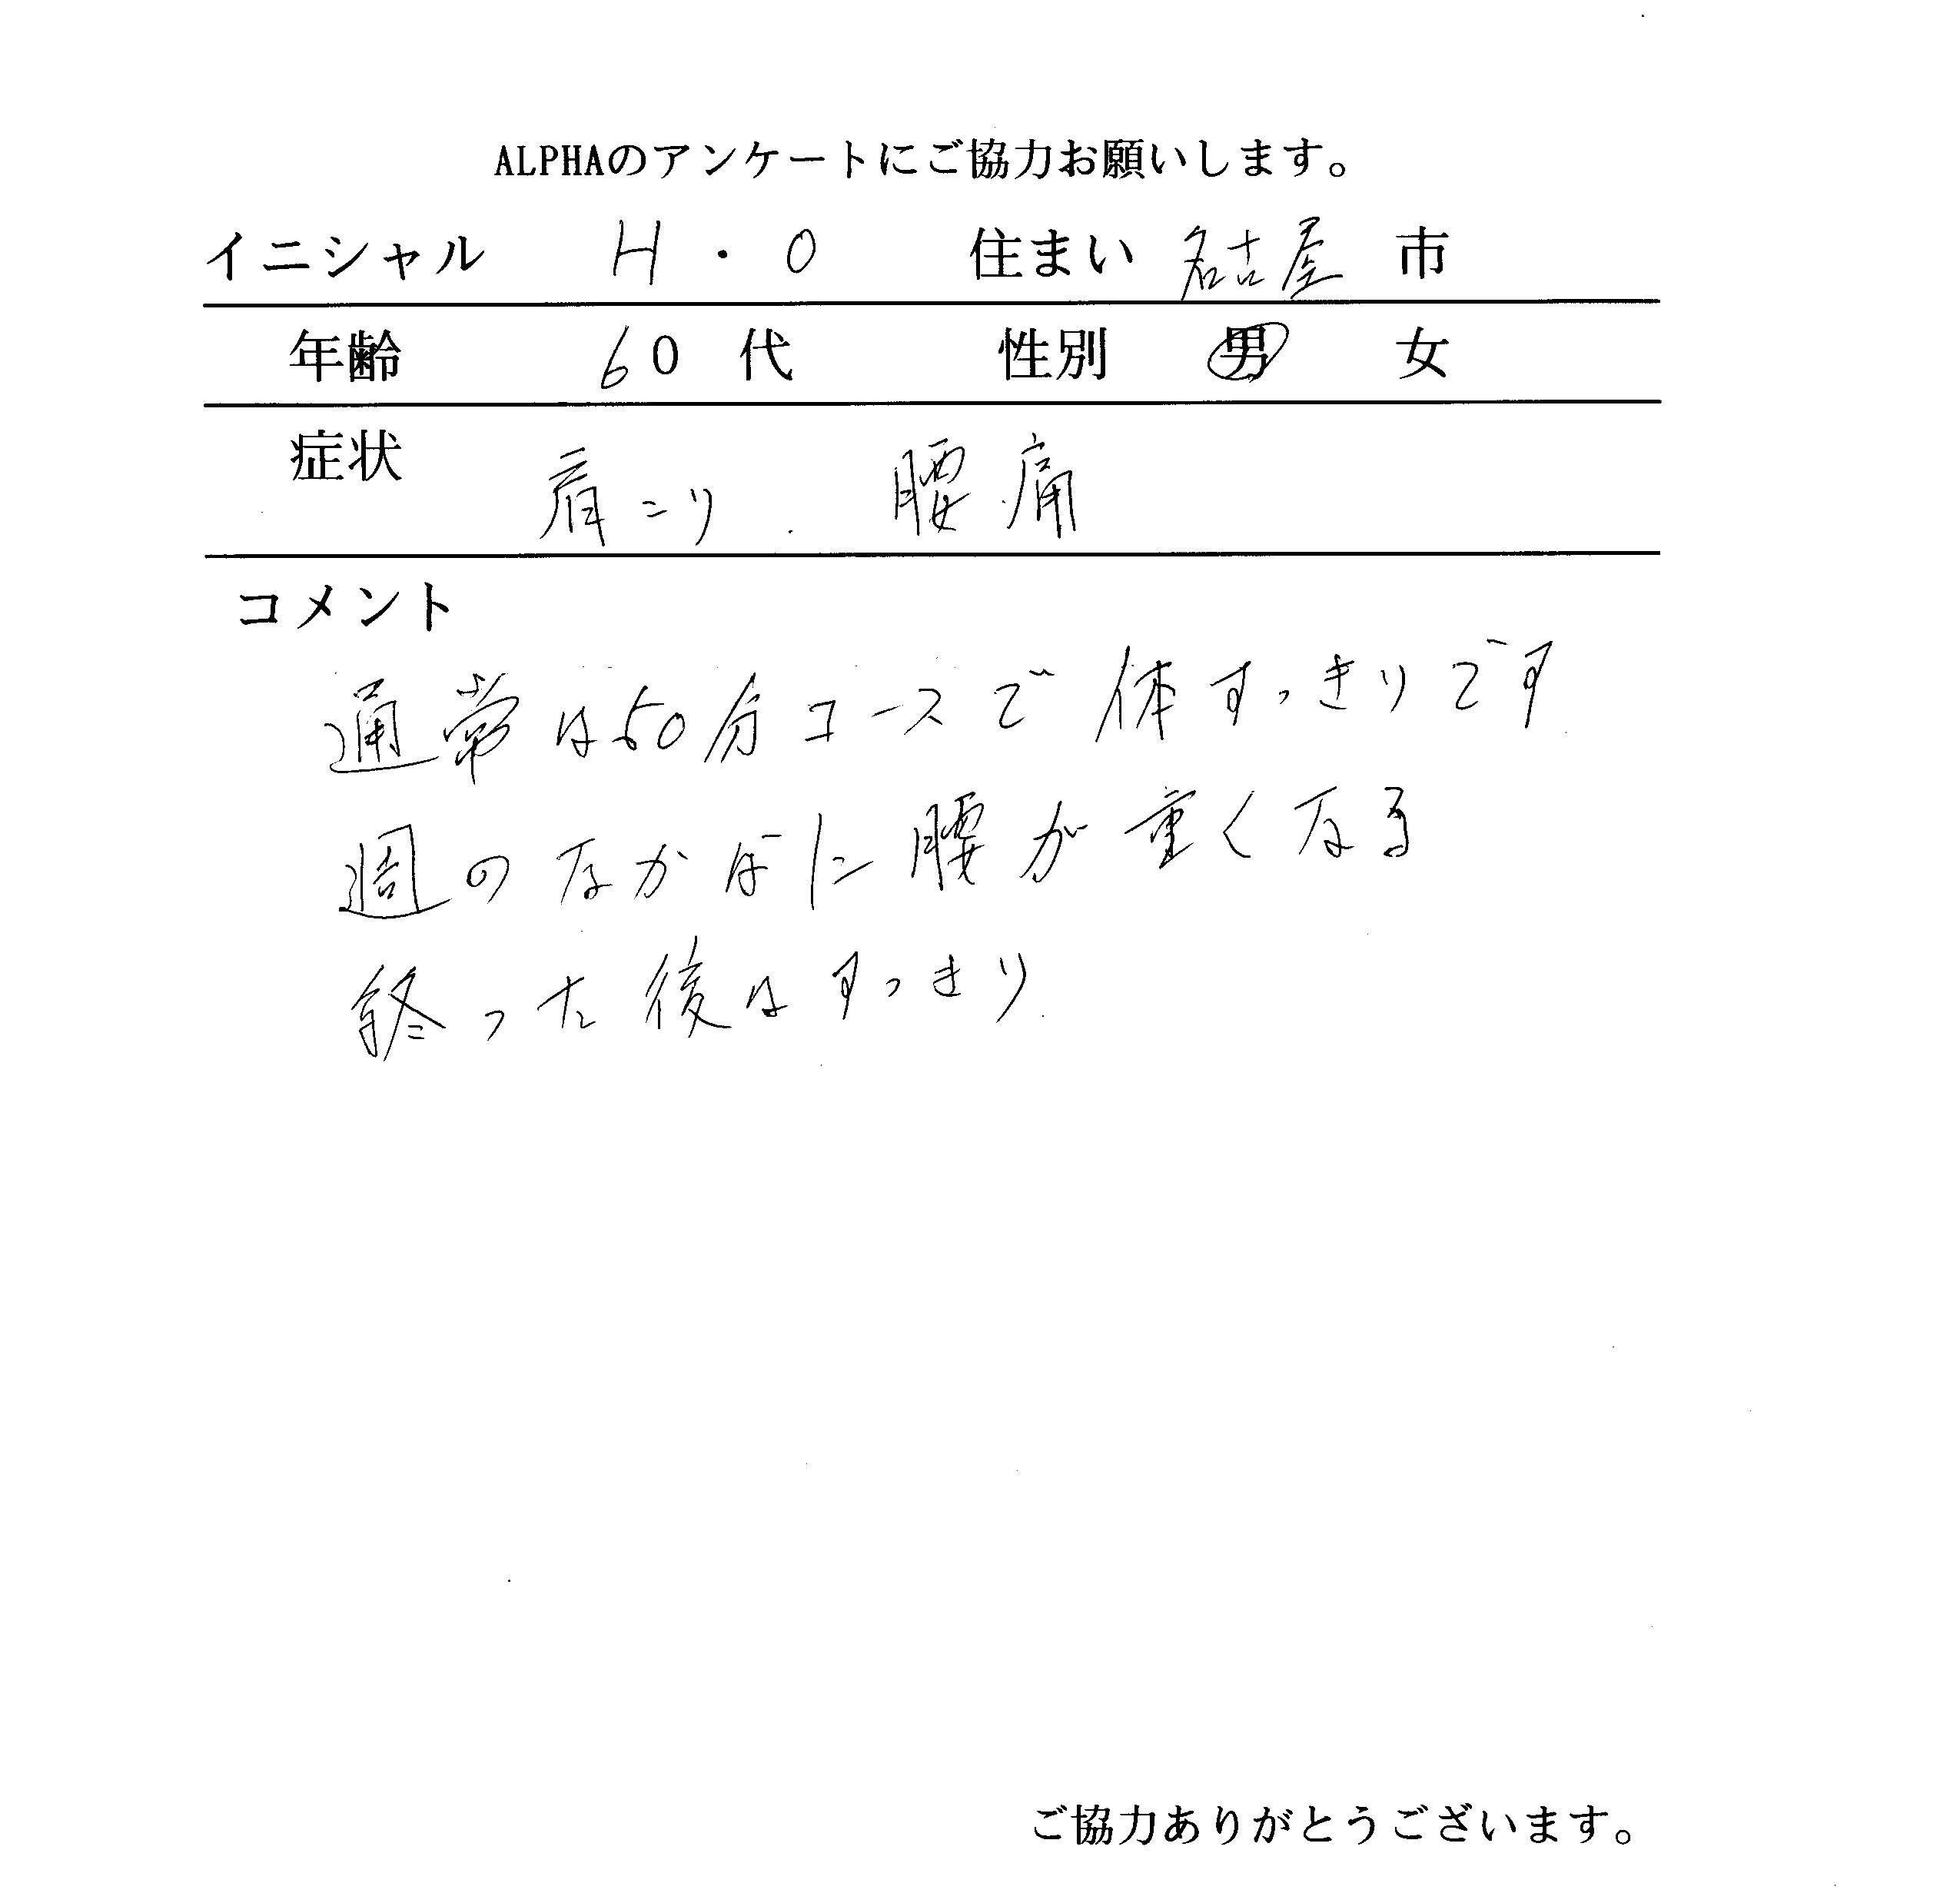 ALPHAのアンケートにご協力お願いします。
イニシャル H・O 住まい 名古屋 市
年齢 60 代 性別 男 女
症状 肩こり. 腰痛
コメント
通常は50分コースで体すっきりです
週のなかばに腰が重くなる
終った後はすっきり
ご協力ありがとうございます。